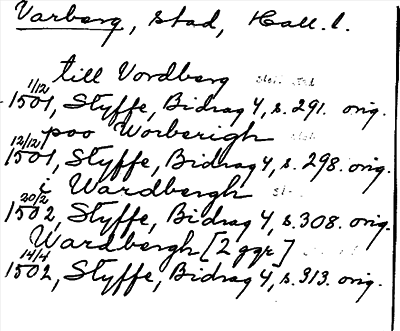 Varberg, stad, Hall. l.
till Vordberg
1/12 1501, Styffe, Bidrag 4, s. 291. orig.
poo Worberigh
12/12 1501, Styffe, Bidrag 4, s. 298. orig.
i Wardbergh
20/2 1502, Styffe, Bidrag 4, s. 308. orig.
Wardbergh [2 ggr]
14/4 1502, Styffe, Bidrag 4, s. 313. orig.